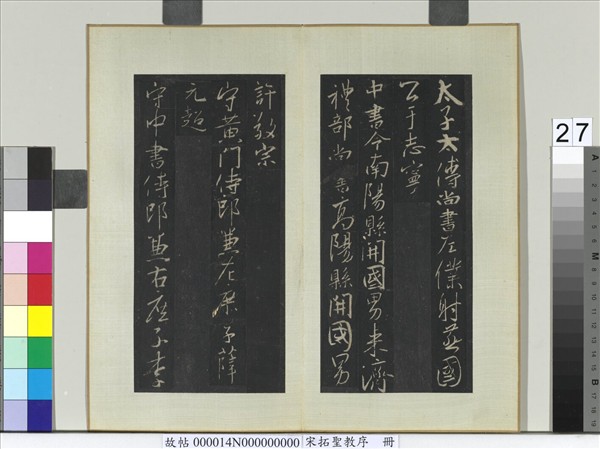 太子太傅尚書左僕射燕國
公于志寧
中書令南陽縣開國男来濟
禮部尚書高陽縣開國男
許敬宗
守黃門侍郎兼左庶子薛
元超
守中書侍郎兼右庶子李
27
故帖 000014N000000000 宋拓聖教序 冊